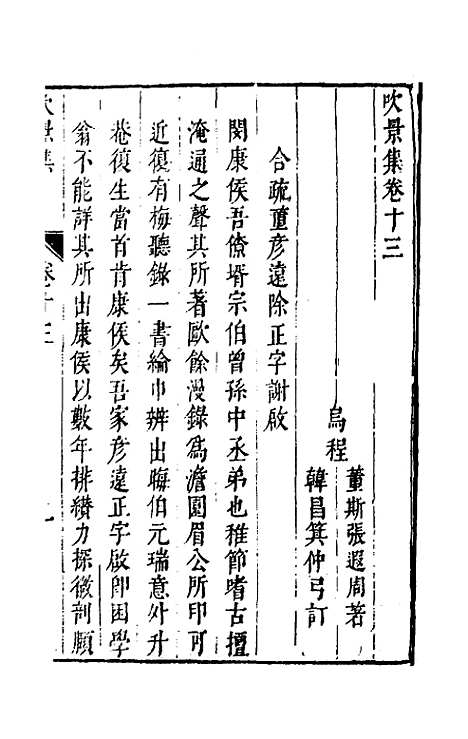 吹景集卷十三
烏程
董斯張遐周著
韓昌箕仲弓訂
合疏董彥遠除正字謝啟
閔康侯吾僚壻宗伯曾孫中丞弟也稚節嗜古擅
淹通之聲其所著歐餘漫錄為澹園眉公所印可
近復有梅聽錄一書綸巾辨出晦伯元瑞意外升
菴復生當首肯康侯矣吾家彥遠正字啟卽困學
翁不能詳其所出康侯以數年排纘力探微剖願
吹景集
卷十三